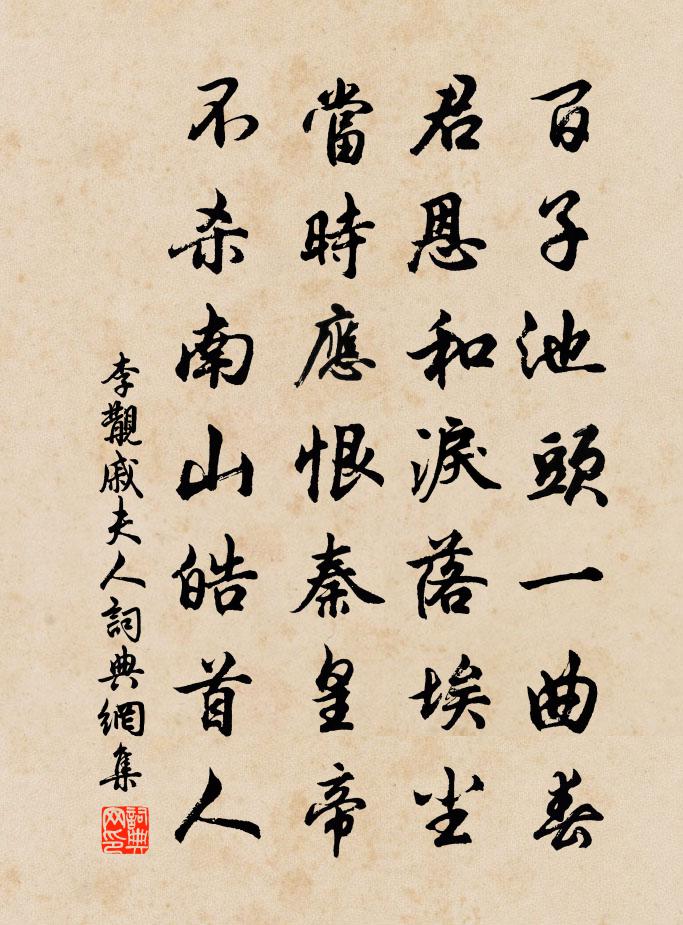 百子池頭一曲春
君恩和淚落埃尘
當時應恨秦皇帝
不杀南山皓首人
李覯戚夫人詞典網集
詞典網印